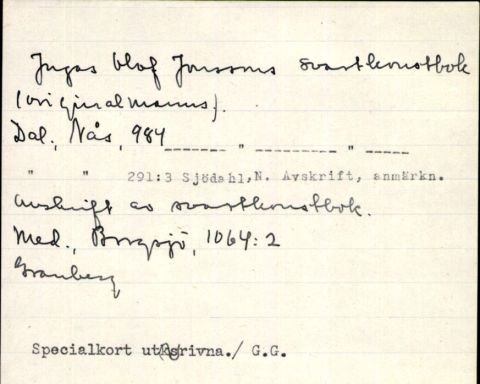 Jugas Olof Jonssons svartkonstbok
(originalmanus).
Dal., Nås, 984 ------- " --------- " -----
" " 291:3 Sjödahl,N. Avskrift, anmärkn.
Avskrift av svartkonstbok.
Med., Borgsjö, 1064:2
Granberg
Specialkort utskrivna./ G.G.